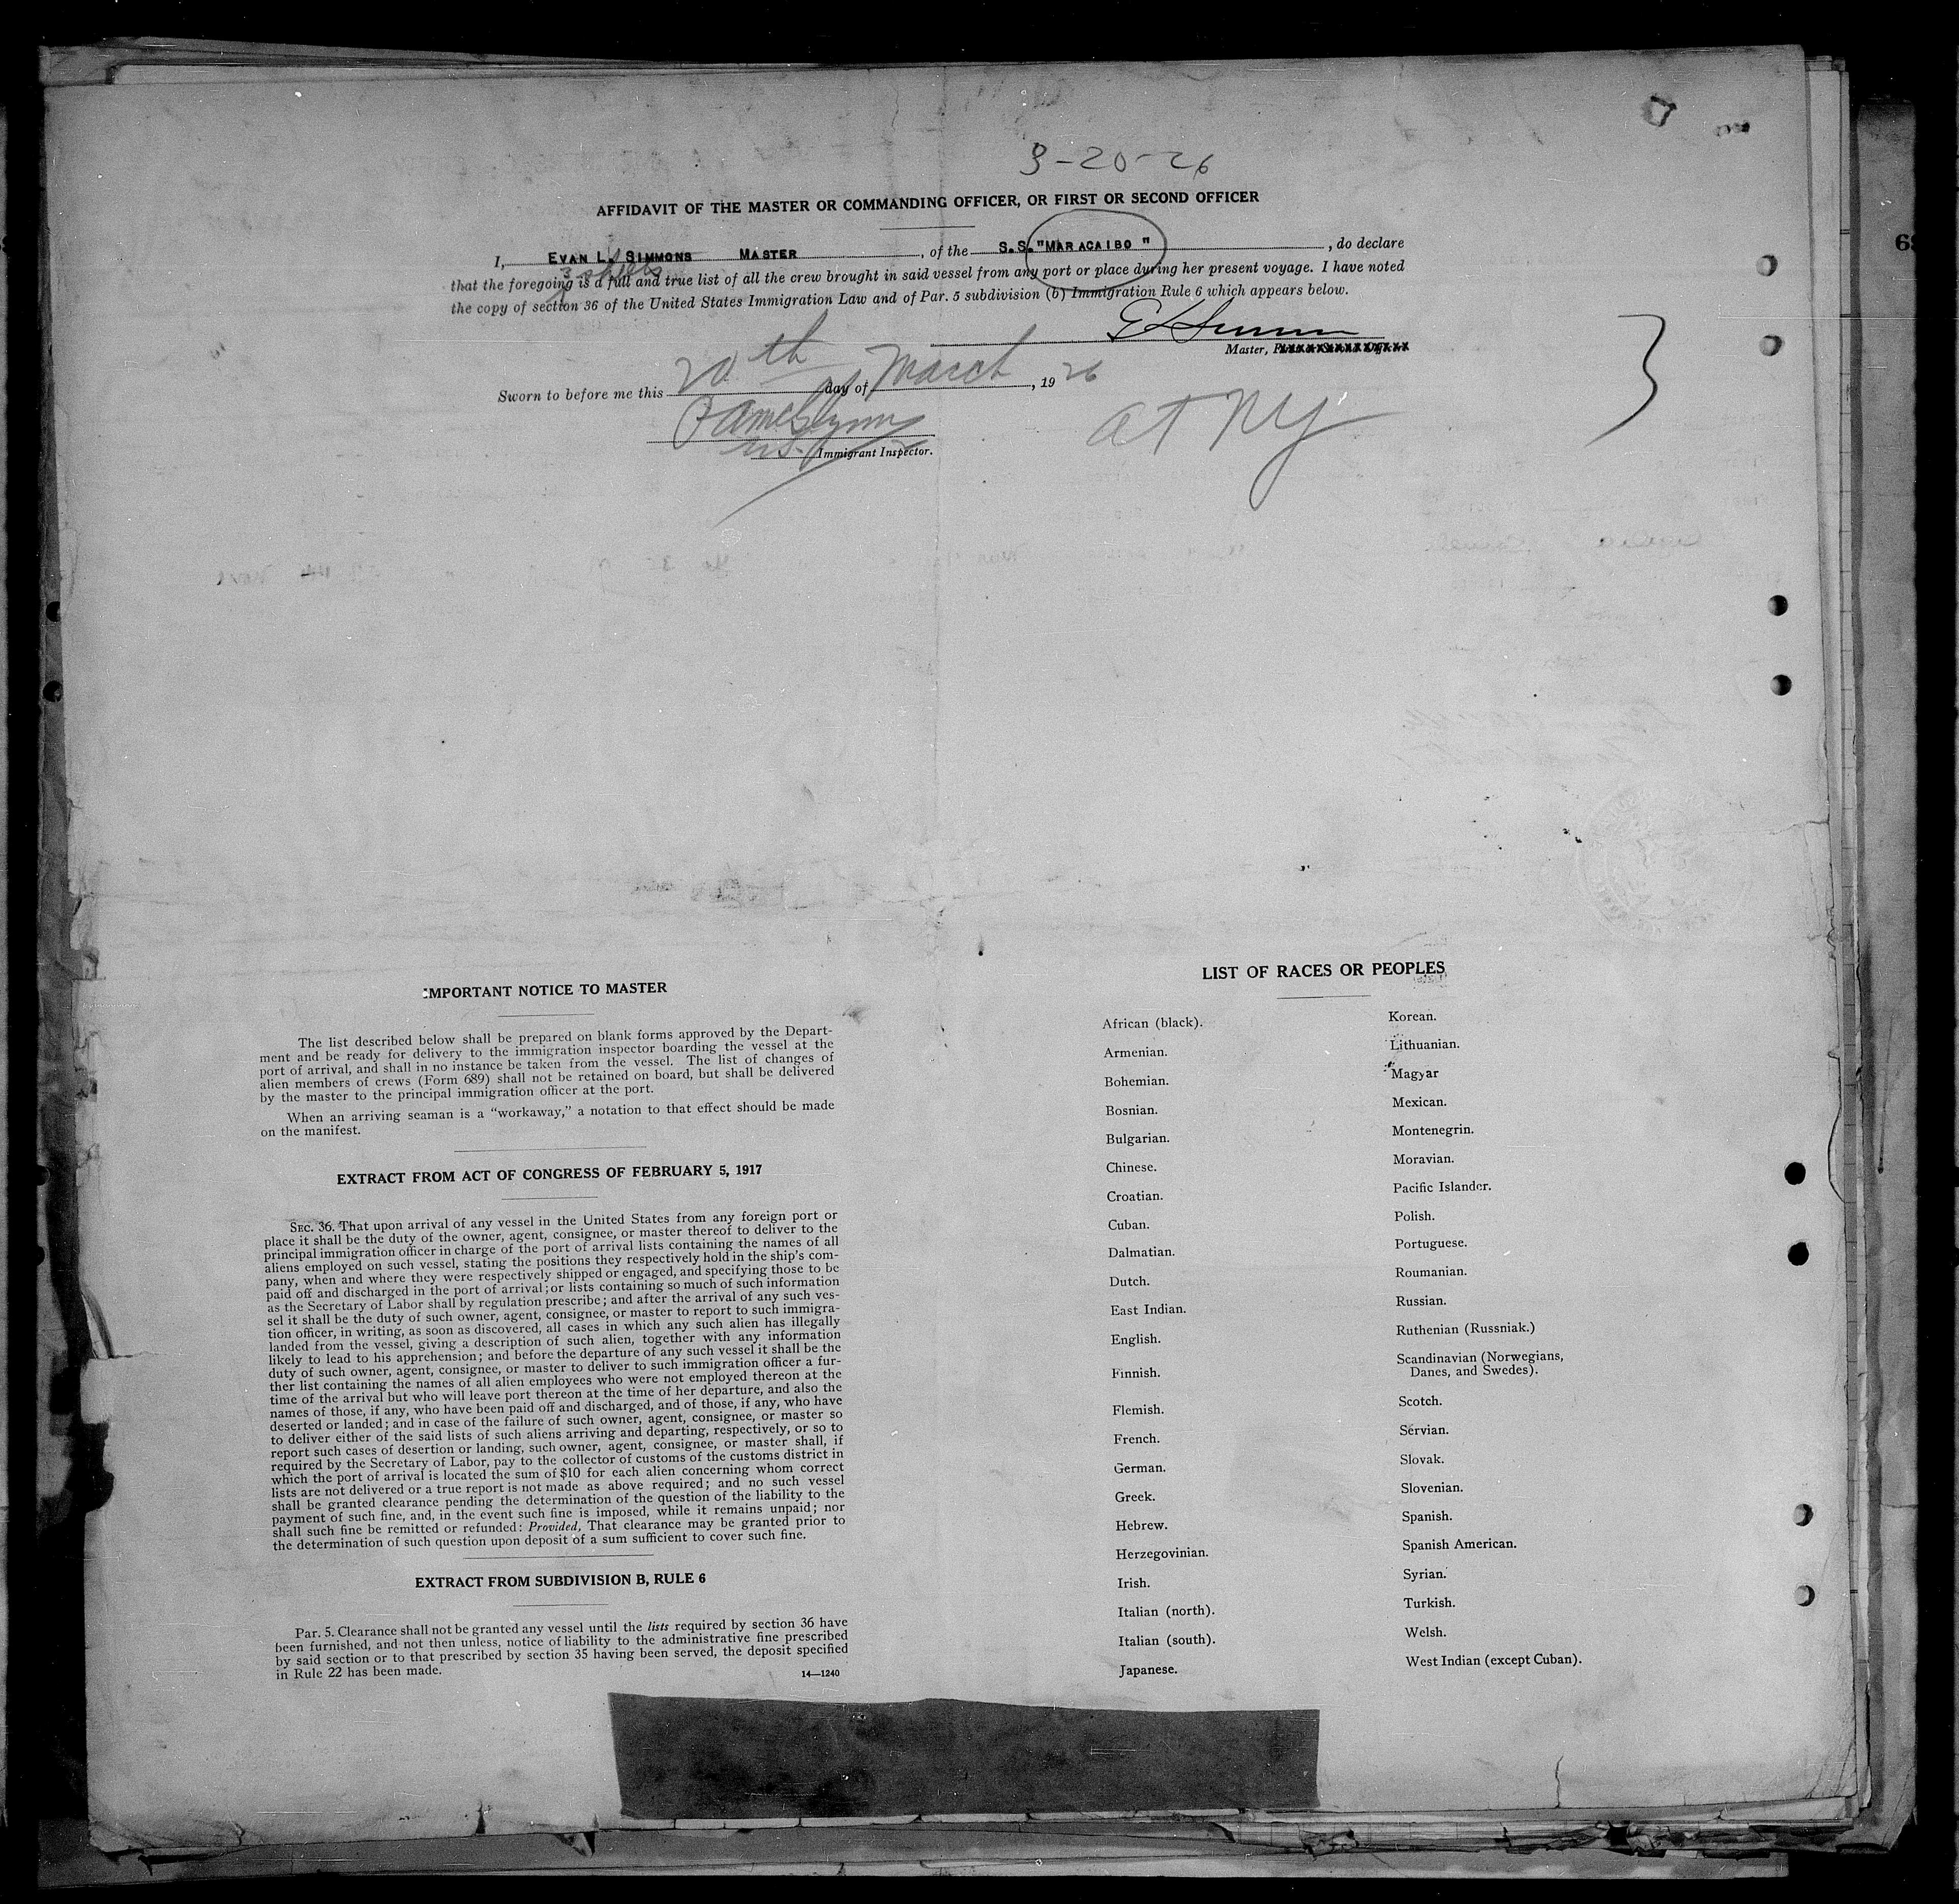 3-20-26
AFFIDAVIT OF THE MASTER OR COMMANDING OFFICER, OR FIRST OR SECOND OFFICER
I, EVAN L. SIMMONS MASTER, of the S.S. "MARACAIBO", do declare
3 sheets
that the foregoing is a full and true list of all the crew brought in said vessel from any port or place during her present voyage. I have noted
the copy of section 36 of the United States Immigration Law and of Par. 5 subdivision (b) Immigration Rule 6 which appears below.
Master,
Sworn to before me this 20th day of March, 1926
at NY
Immigrant Inspector.
IMPORTANT NOTICE TO MASTER
The list described below shall be prepared on blank forms approved by the Depart-
ment and be ready for delivery to the immigration inspector boarding the vessel at the
port of arrival, and shall in no instance be taken from the vessel. The list of changes of
alien members of crews (Form 689) shall not be retained on board, but shall be delivered
by the master to the principal immigration officer at the port.
When an arriving seaman is a "workaway," a notation to that effect should be made
on the manifest.
EXTRACT FROM ACT OF CONGRESS OF FEBRUARY 5, 1917
SEC. 36. That upon arrival of any vessel in the United States from any foreign port or
place it shall be the duty of the owner, agent, consignee, or master thereof to deliver to the
principal immigration officer in charge of the port of arrival lists containing the names of all
aliens employed on such vessel, stating the positions they respectively hold in the ship's com-
pany, when and where they were respectively shipped or engaged, and specifying those to be
paid off and discharged in the port of arrival; or lists containing so much of such information
as the Secretary of Labor shall by regulation prescribe; and after the arrival of any such ves-
sel it shall be the duty of such owner, agent, consignee, or master to report to such immigra-
tion officer, in writing, as soon as discovered, all cases in which any such alien has illegally
landed from the vessel, giving a description of such alien, together with any information
likely to lead to his apprehension; and before the departure of any such vessel it shall be the
duty of such owner, agent, consignee, or master to deliver to such immigration officer a fur-
ther list containing the names of all alien employees who were not employed thereon at the
time of the arrival but who will leave port thereon at the time of her departure, and also the
names of those, if any, who have been paid off and discharged, and of those, if any, who have
deserted or landed; and in case of the failure of such owner, agent, consignee, or master so
to deliver either of the said lists of such aliens arriving and departing, respectively, or so to
report such cases of desertion or landing, such owner, agent, consignee, or master shall, if
required by the Secretary of Labor, pay to the collector of customs of the customs district in
which the port of arrival is located the sum of $10 for each alien concerning whom correct
lists are not delivered or a true report is not made as above required; and no such vessel
shall be granted clearance pending the determination of the question of the liability to the
payment of such fine, and, in the event such fine is imposed, while it remains unpaid; nor
shall such fine be remitted or refunded: Provided, That clearance may be granted prior to
the determination of such question upon deposit of a sum sufficient to cover such fine.
EXTRACT FROM SUBDIVISION B, RULE 6
Par. 5. Clearance shall not be granted any vessel until the lists required by section 36 have
been furnished, and not then unless, notice of liability to the administrative fine prescribed
by said section or to that prescribed by section 35 having been served, the deposit specified
in Rule 22 has been made.
14—1240
LIST OF RACES OR PEOPLES
African (black).
Armenian.
Bohemian.
Bosnian.
Bulgarian.
Chinese.
Croatian.
Cuban.
Dalmatian.
Dutch.
East Indian.
English.
Finnish.
Flemish.
French.
German.
Greek.
Hebrew.
Herzegovinian.
Irish.
Italian (north).
Italian (south).
Japanese.
Korean.
Lithuanian.
Magyar
Mexican.
Montenegrin.
Moravian.
Pacific Islander.
Polish.
Portuguese.
Roumanian.
Russian.
Ruthenian (Russniak.)
Scandinavian (Norwegians,
Danes, and Swedes).
Scotch.
Servian.
Slovak.
Slovenian.
Spanish.
Spanish American.
Syrian.
Turkish.
Welsh.
West Indian (except Cuban).